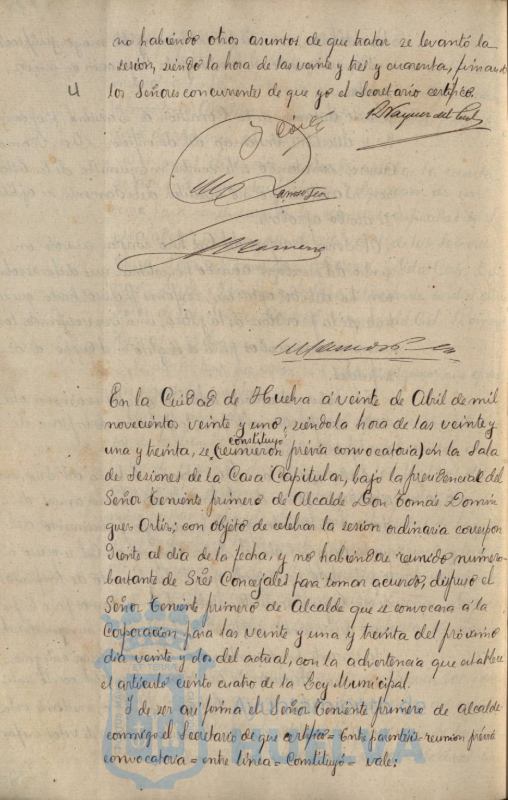 no habiendo otros asuntos de que tratar se levantó la
sesion, siendo la hora de las veinte y tres y cuarenta, firmando
los Señores concurrentes de que yo el Secretario certifico.
En la Ciudad de Huelva á veinte de Abril de mil
novecientos veinte y uno, siendo la hora de las veinte y
una y treinta, se (reunieron prévia convocatoria) en la Sala
constituyó
de Sesiones de la Casa Capitular, bajo la presidencia del
Señor Teniente primero de Alcalde Don Tomás Domin
guez Ortiz; con objeto de celebrar la sesion ordinaria correspon
diente al dia de la fecha, y no habiendose reunido número
bastante de Sres Concejales para tomar acuerdo, dispuso el
Señor Teniente primero de Alcalde que se convocara á la
Corporacion para las veinte y una y treinta del próximo
dia veinte y dos del actual, con la advertencia que establece
el articulo ciento cuatro de la Ley Municipal.
Y de ser asi firma el Señor Teniente primero de Alcalde
conmigo el Secretario de que certifico = Entre parentesis = reunion prévia
convocatoria = entre linea = Constituyó = vale;
Ayuntamiento de
HUELVA